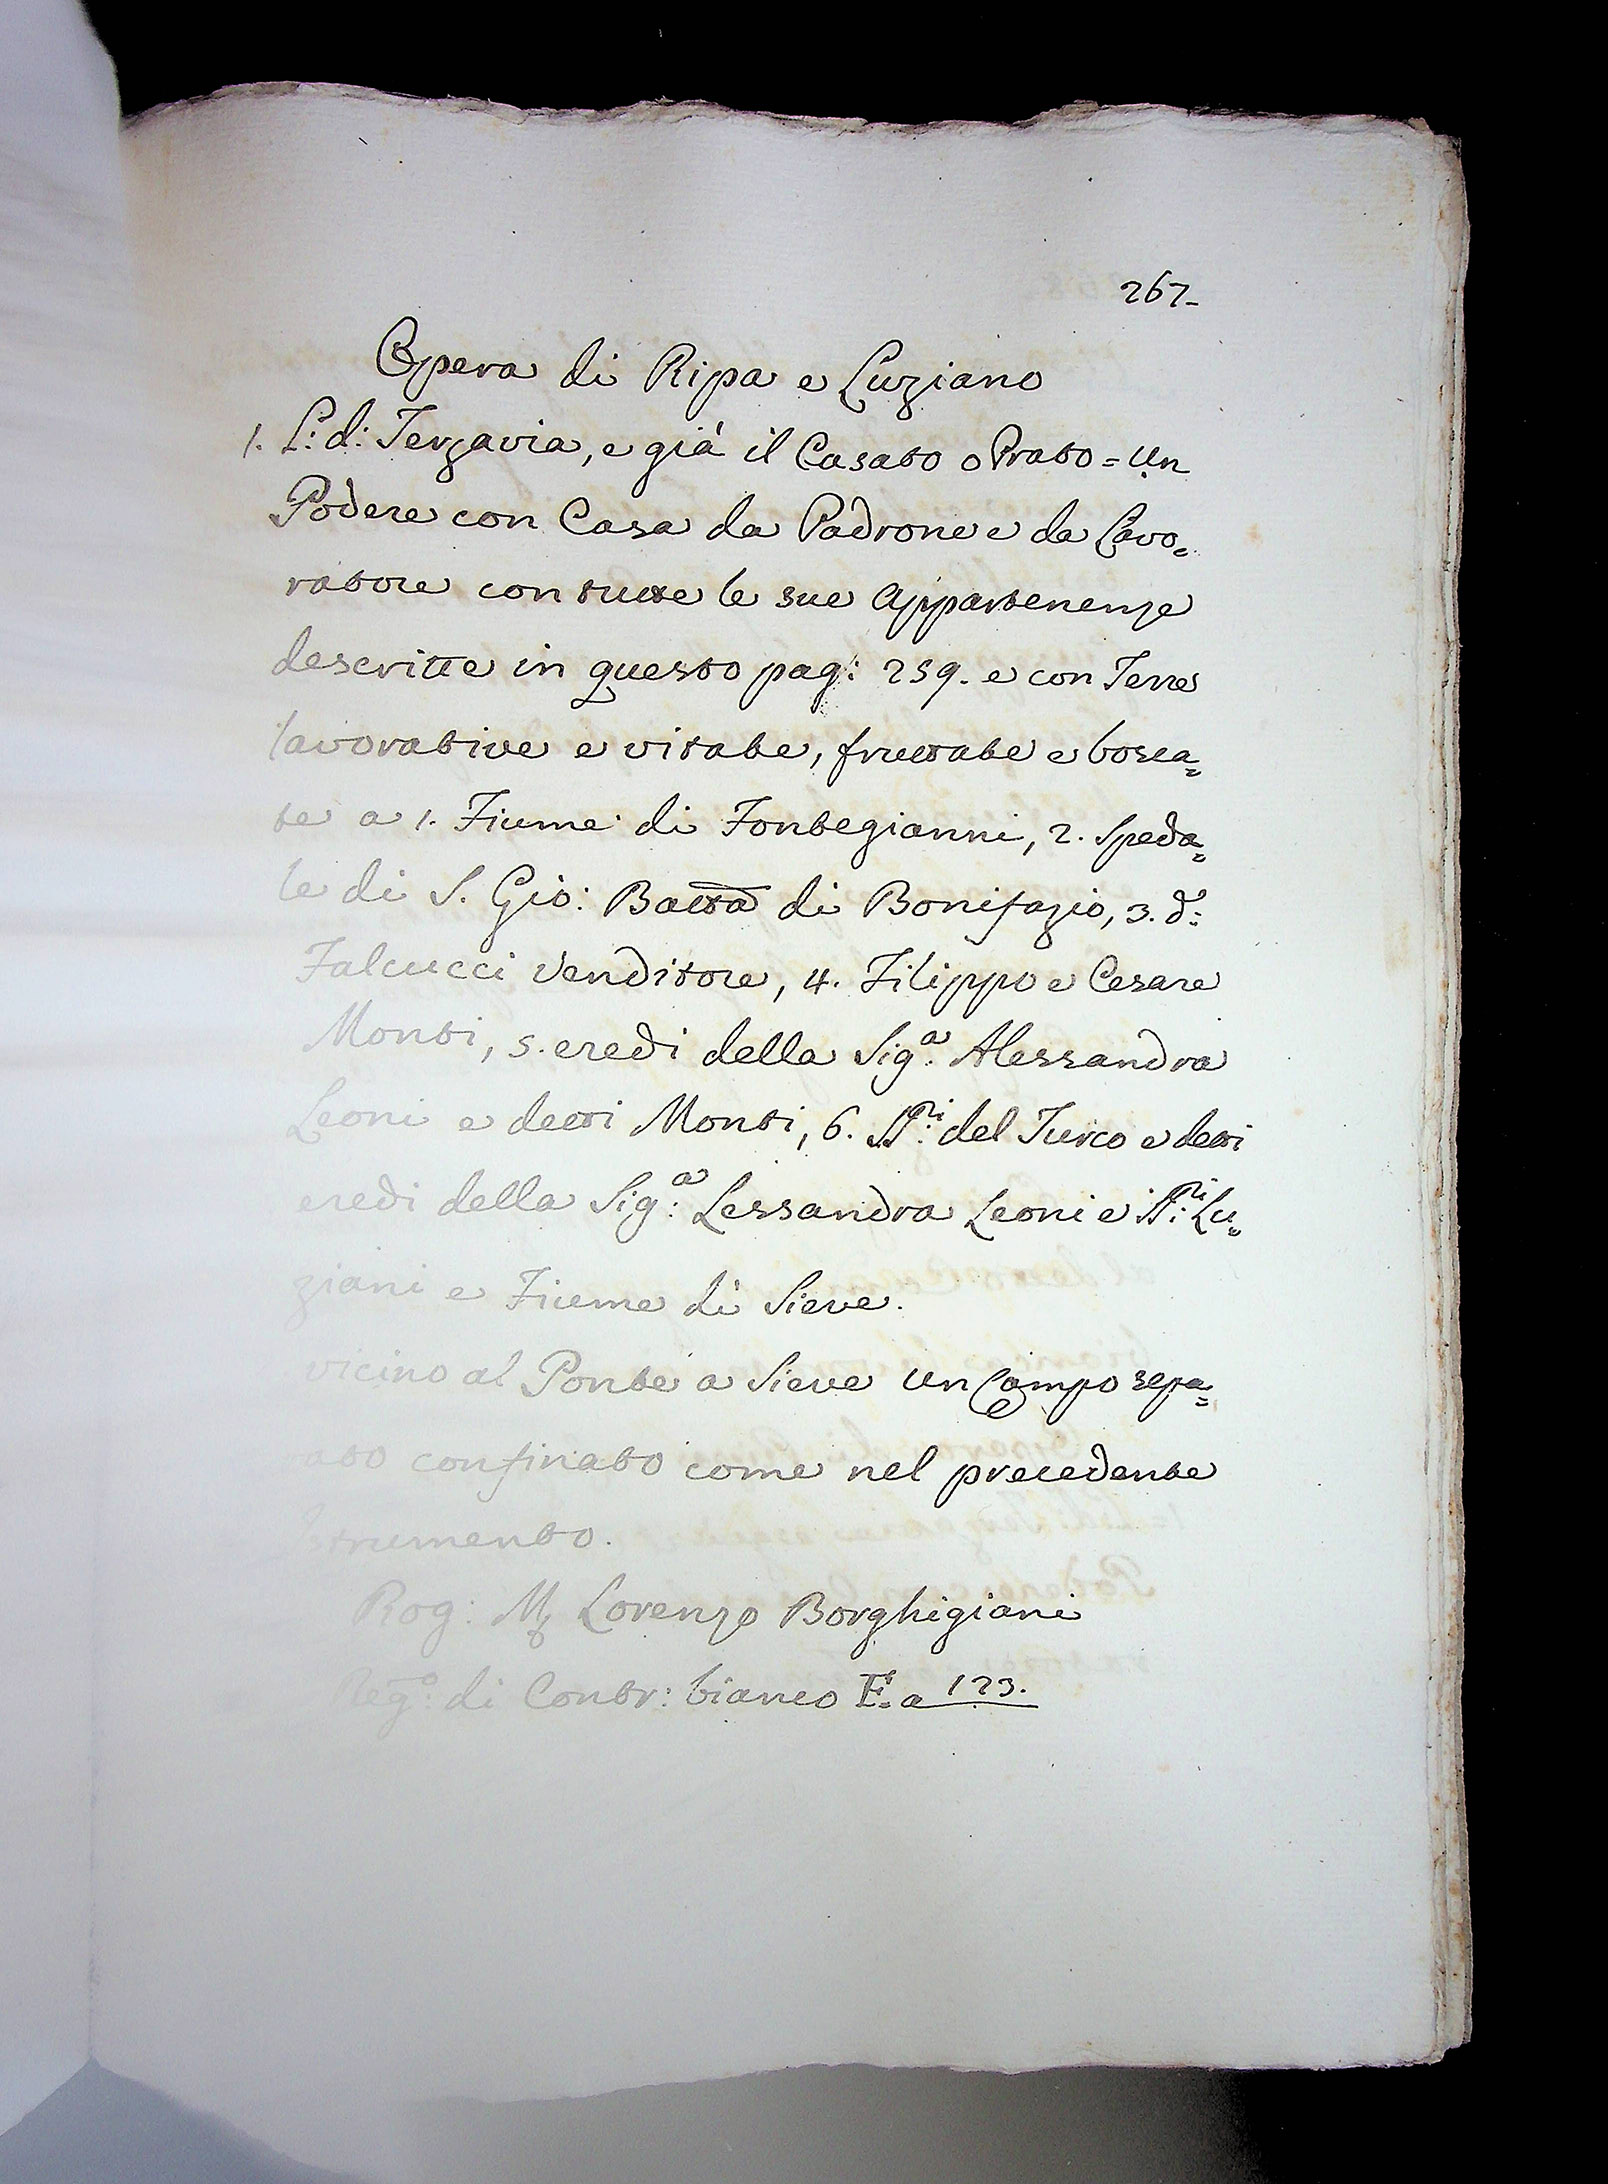 267-
Opera di Ripa e Luziano
1. L: d: Terzavia, e già il Casato o Prato = Un
Podere con Casa da Padrone e da Lavo=
ratore con tutte le sue Appartenenze
descritte in questo pag: 259. e con Terre
lavorative e vitate, fruttate e bosca=
te a 1. Fiume di Fontegianni, 2. Speda=
le di S. Gio: Batta di Bonifazio, 3. d:
Falcucci Venditore, 4. Filippo e Cesare
Monti, 5. eredi della Sig:a Alessandra
Leoni e detti Monti, 6. SS:ri del Turco e detti
eredi della Sig:a Lessandra Leoni e SS:ri Lu=
ziani e Fiume di Sieve.
vicino al Ponte a Sieve un Campo sepa=
rato confinato come nel precedente
strumento.
Rog: Lorenzo Borghigiani
Reg:o di Contr: bianco E. a 123.